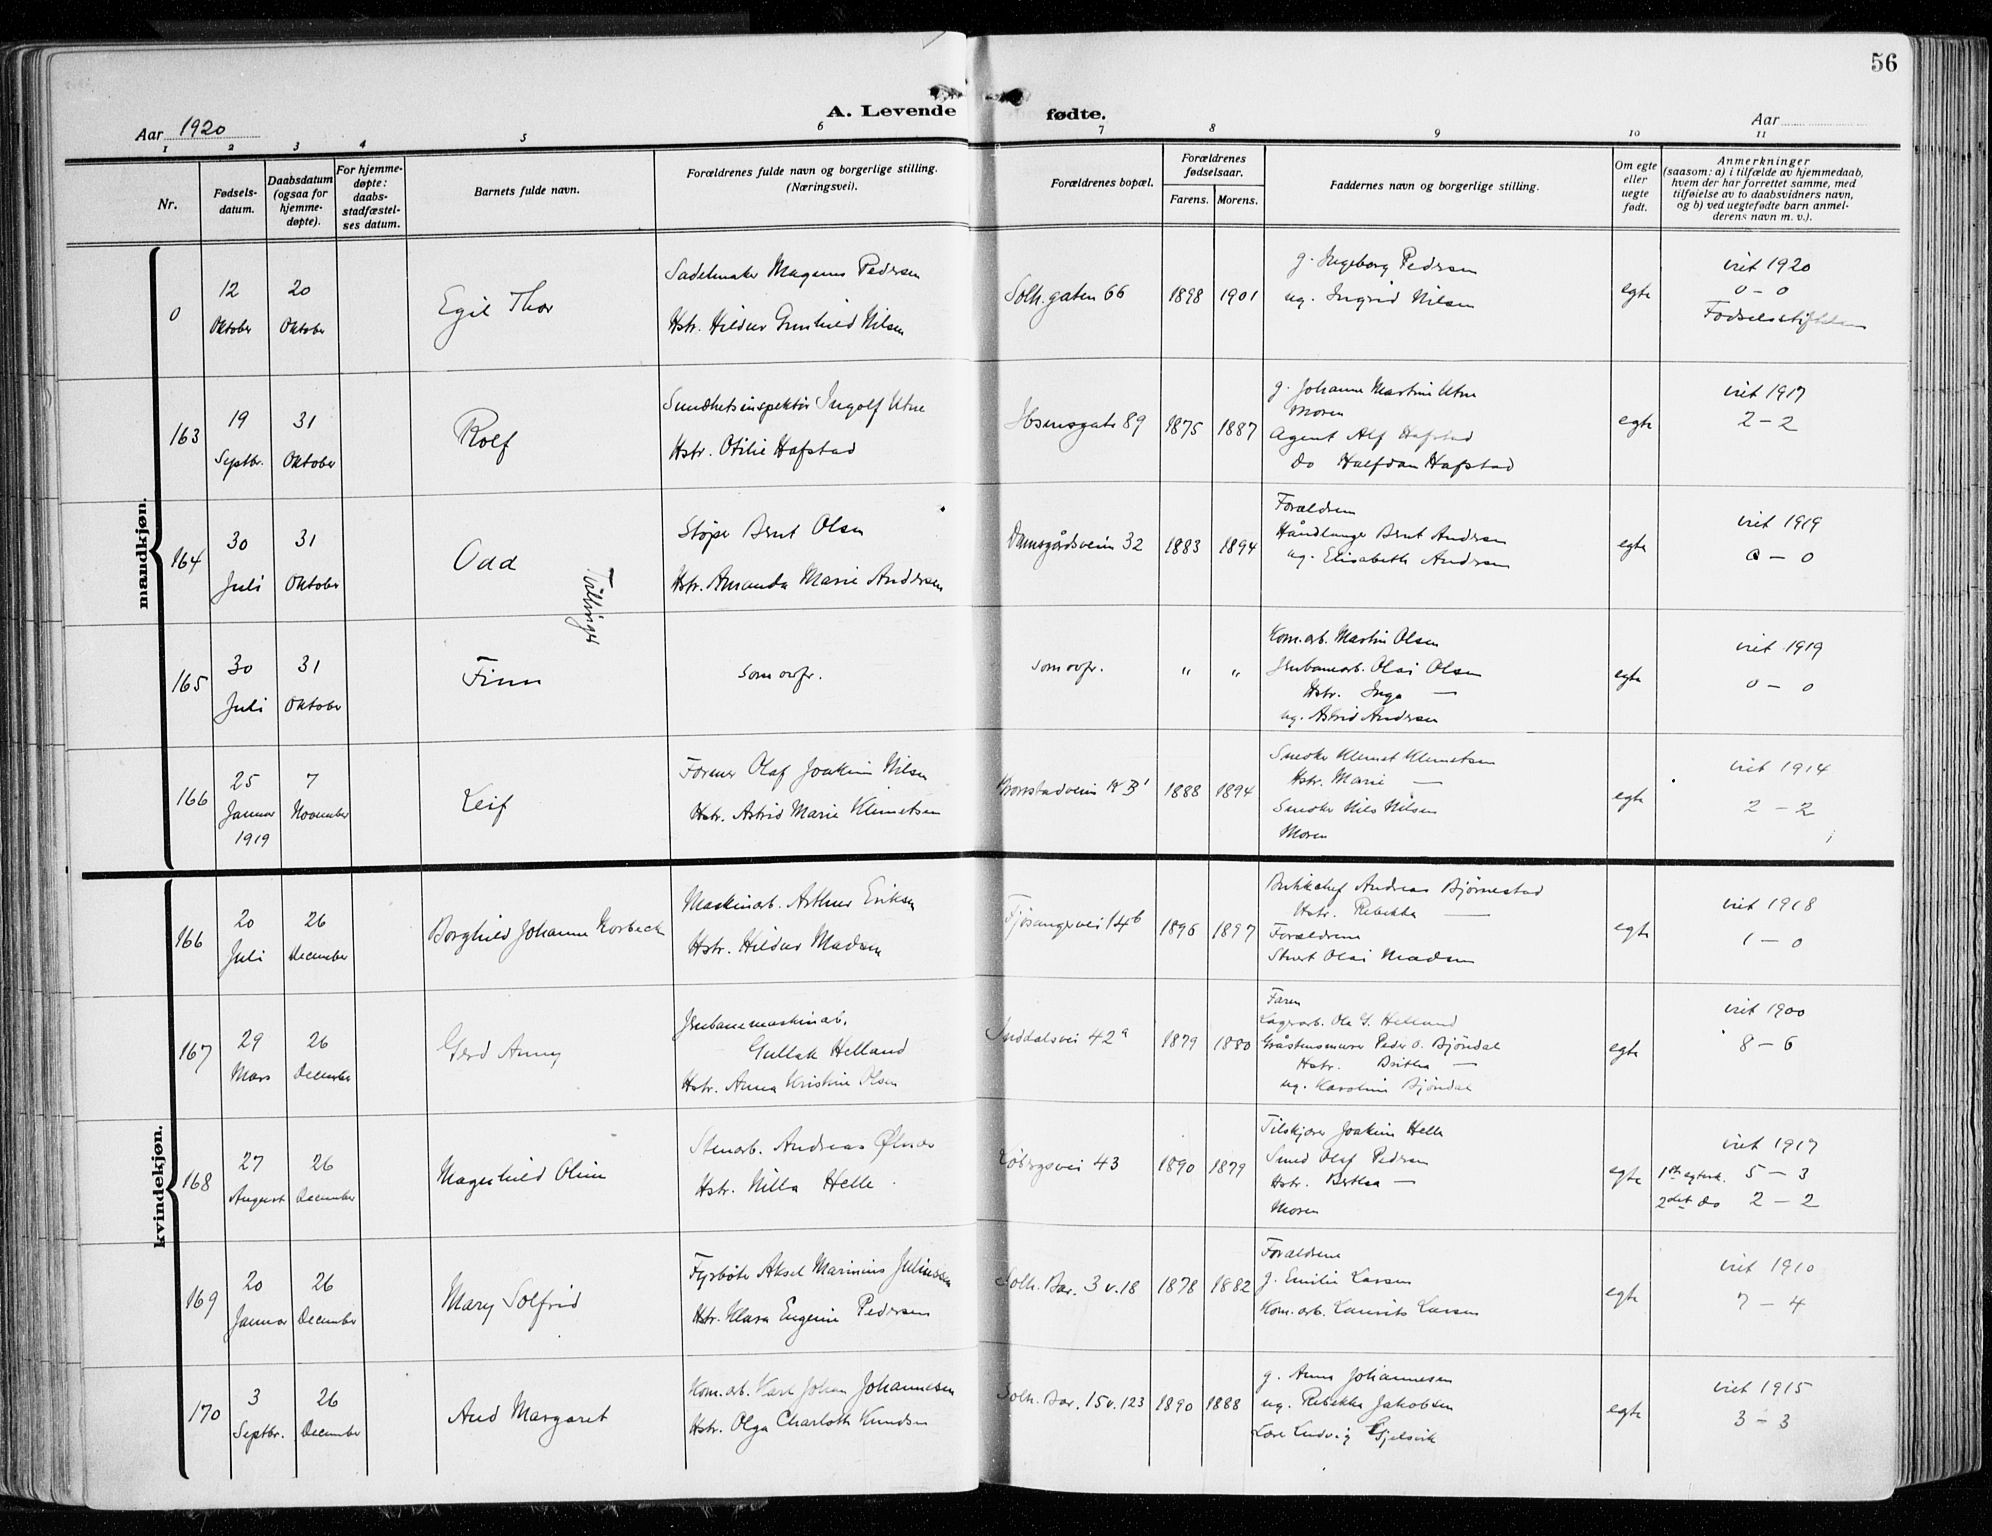 56
A. Levende fødte.
Aar 1920
Aar
1 2 3 4 5 6 7 8 9 10 11
Nr.
Fødsels-
datum.
Daabsdatum
(ogsaa for
hjemme-
døpte).
For hjemme-
døpte:
daabs-
stadfæstel-
ses datum.
Barnets fulde navn.
Forældrenes fulde navn og borgerlige stilling.
(Næringsvei).
Forældrenes bopæl.
Forældrenes
fødselsaar.
Farens. Morens.
Faddernes navn og borgerlige stilling.
Om egte
eller
uegte
født.
Anmerkninger
(saasom: a) i tilfælde av hjemmedaab,
hvem der har forrettet samme, med
tilføielse av to daabsvidners navn,
og b) ved uegtefødte barn anmel-
derens navn m. v.).
mandkjøn.
0
12
Oktober
20
Oktober
Egil Thor
Sadelmaker Magnus Pedersen
Hstr. Hildur Gunhild Nilsen
Solh.gaten 66
1898
1901
g. Ingeborg Pedersen
ug. Ingrid Nilsen
egte
viet 1920
0 – 0
Fødselsstiftelsen
163
19
Septbr.
31
Oktober
Rolf
Sundhetsinspektør Ingolf Utne
Hstr. Otilie Hafstad
Ibsensgate 89
1875
1887
g. Johanne Martine Utne
Moren
Agent Alf Hafstad
Do Halfdan Hafstad
egte
viet 1917
2 – 2
164
30
Juli
31
Oktober
Odd
Tvillinger
Støper Bernt Olsen
Hstr. Amanda Marie Andersen
Damsgårdsveien 32
1883
1894
Forældrene
Håndlanger Bernt Andersen
ug. Elisabeth Andersen
egte
viet 1919
0 – 0
165
30
Juli
31
Oktober
Finn
som ovfr.
som ovfr.
"
"
Kom.arb. Martin Olsen
Jernbanearb. Olai Olsen
Hstr. Inga —
ug. Astrid Andersen
egte
viet 1919
0 – 0
166
25
Januar
1919
7
November
Leif
Former Olaf Joakim Nilsen
Hstr. Astrid Marie Klemetsen
Kronstadveien
1888
1894
Snedker Klemet Klemetsen
Hstr. Marie —
Snedker Nils Nilsen
Moren
egte
viet 1914
2 – 2
kvindekjøn.
166
20
Juli
26
December
Borghild Johanne Norbeck
Maskinarb. Arthur Eriksen
Hstr. Hildur Madsen
Fjøsangervei 14b
1896
1897
Butikchef Andreas Bjørnestad
Hstr. Rebekka —
Forældrene
Stuert Olai Madsen
egte
viet 1918
1 – 0
167
29
Mars
26
December
Gerd Anny
Jernbanemaskinarb.
Gullak Helland
Hstr. Anna Kristine Olsen
Inddalsvei 42a
1879
1880
Faren
Lagerarb. Ole G. Helland
Gråstensmurer Peder O. Bjöndal
Hstr. Britha —
ug. Karoline Bjöndal
egte
viet 1900
8 – 6
168
27
August
26
December
Magnhild Oline
Stenarb. Andreas Ølnes
Hstr. Nilla Helle
Løbergsvei 43
1890
1879
Tilskjærer Joakim Helle
Smed Olaf Pedersen
Hstr. Bertha —
Moren
egte
viet 1917
1ste egtesk. 5 – 3
2det Do 2 – 2
169
20
Januar
26
December
Mary Solfrid
Fyrbøter Aksel Marinius Juliussen
Hstr. Klara Eugenie Pedersen
Solh. Bar. 3 v. 18
1878
1882
Forældrene
g. Emilie Larsen
Kom.arb. Laurits Larsen
egte
viet 1910
7 – 4
170
3
Septbr.
26
December
Aud Margaret
Kom.arb. Karl Johan Johannesen
Hstr. Olga Charlotte Knudsen
Solh. Bar. 15 v. 123
1890
1888
g. Anna Johannesen
ug. Rebekka Jakobsen
Lærer Ludvig Gjelsvik
egte
viet 1915
3 – 3